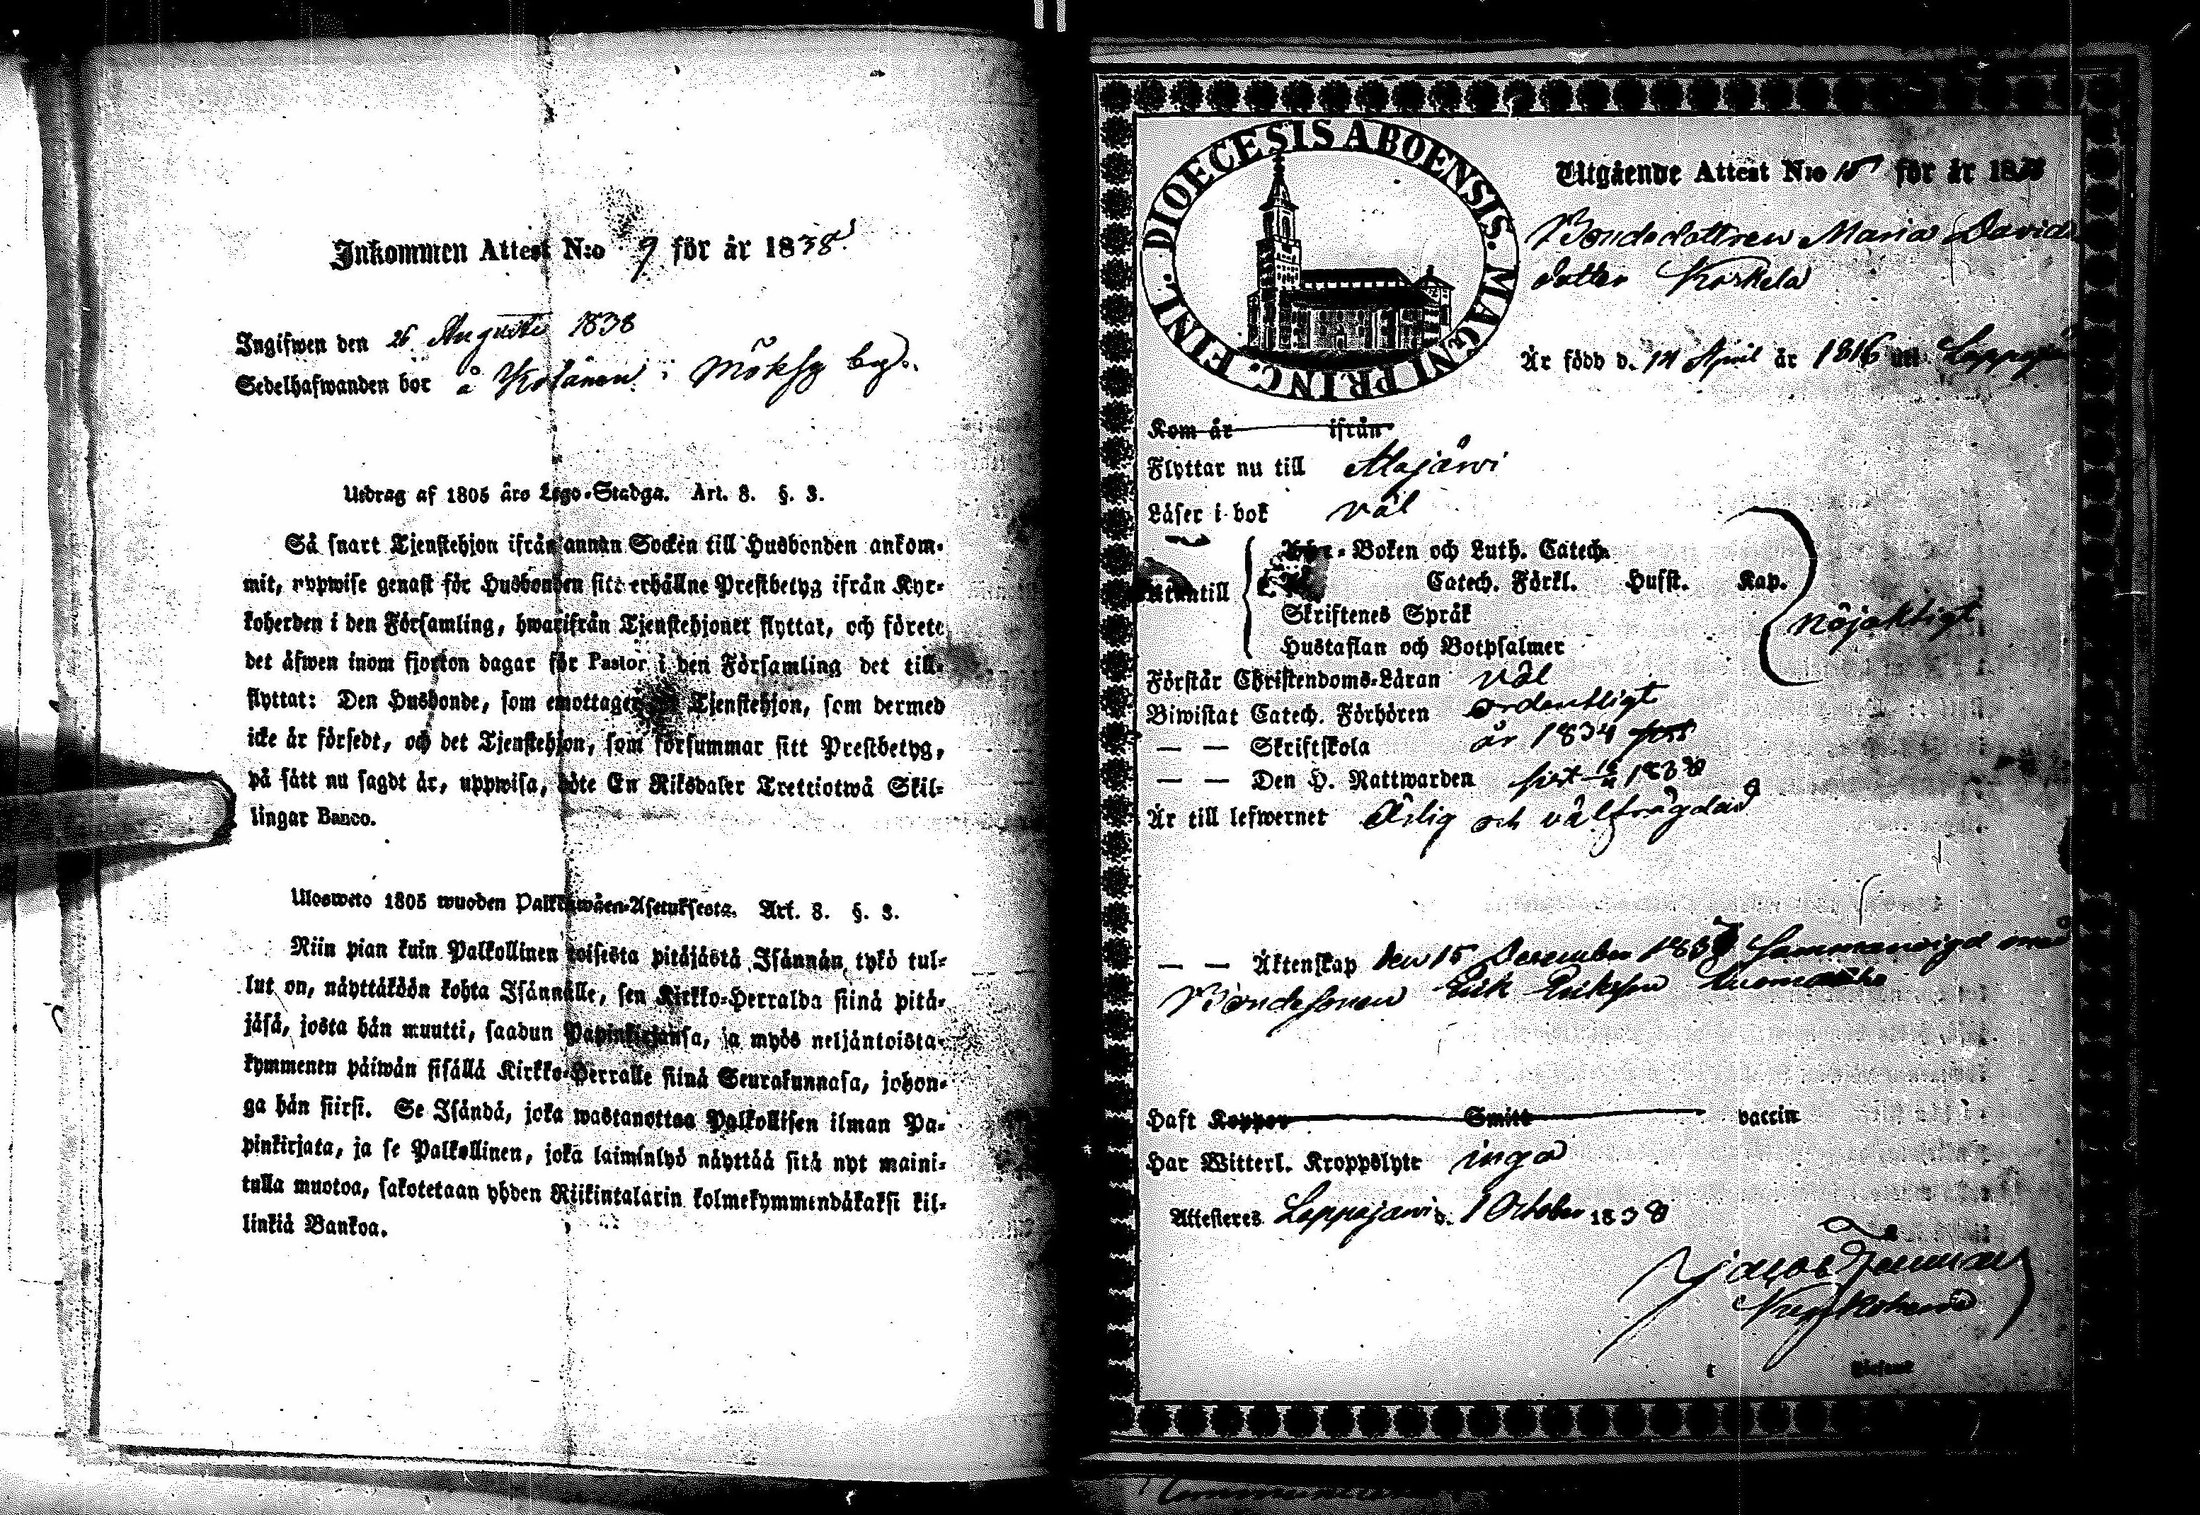 Inkommen Attest N:o 9 för år 1838.
Ingifwen den 26 Augusti 1838
Sedelhafwanden bor å i Möksy by.
Utdrag af 1805 års Lego-Stadga. Art. 8. §. 3.
Så snart Tjenstehjon ifrån annan Socken till Husbonden ankom-
mit, uppwise genast för Husbonden sitt erhållne Prestbetyg ifrån Kyr-
koherden i den Församling, hwarifrån Tjenstehjonet flyttat, och förete
det äfwen inom fjorton dagar för Pastor i den Församling det till-
flyttat: Den Husbonde, som emottager Tjenstehjon, som dermed
icke är försedt, och det Tjenstehjon, som försummar sitt Prestbetyg,
på sätt nu sagdt är, uppwisa, böte En Riksdaler Trettiotwå Skil-
lingar Banco.
Ulosweto 1805 wuoden Palkkawäen-Asetuksesta. Art. 8. §. 3.
Niin pian kuin Palkollinen toisesta pitäjästä Isännän tykö tul-
lut on, näyttäköön kohta Isännälle, sen Kirkko-Herralda siinä pitä-
jäsä, josta hän muutti, saadun Papinkirjansa, ja myös neljäntoista-
kymmenen päiwän sisällä Kirkko-Herralle siinä Seurakunnasa, johon-
ga hän siirsi. Se Isändä, joka wastanottaa Palkollisen ilman Pa-
pinkirjata, ja se Palkollinen, joka laiminlyö näyttää sitä nyt maini-
tulla muotoa, sakotetaan yhden Riikintalarin kolmekymmendäkaksi kil-
linkiä Bankoa.
DIOECESIS ABOENSIS. MAGNI PRINC. FINL.
Utgående Attest N:o för år 18
Bondedottren Maria Davids
dotter Koskela
Är född d. 14 April år 1816 uti Lappajä
Kom år ifrån
Flyttar nu till Alajärvi
Läser i bok väl
Utantill
Boken och Luth. Catech.
Catech. Förkl. Husst. Kap.
Skriftenes Språk
Hustaflan och Botpsalmer
nöjaktigt
Förstår Christendoms-Läran väl
Biwistat Catech. Förhören ordentligt
— — Skriftskola år 1834
— — Den H. Nattwarden sist 1838
Är till lefwernet Ärlig och välfrägdad
— — Äktenskap den 15 December 1837 Sammanvigd med
Bondesonen Erik Eriksson
Haft Koppor Smitt vaccin
Har Witterl. Kroppslyte inga
Attesteres Lappajärvi d. 1 October 1838
Jacob
Kyrkoherde